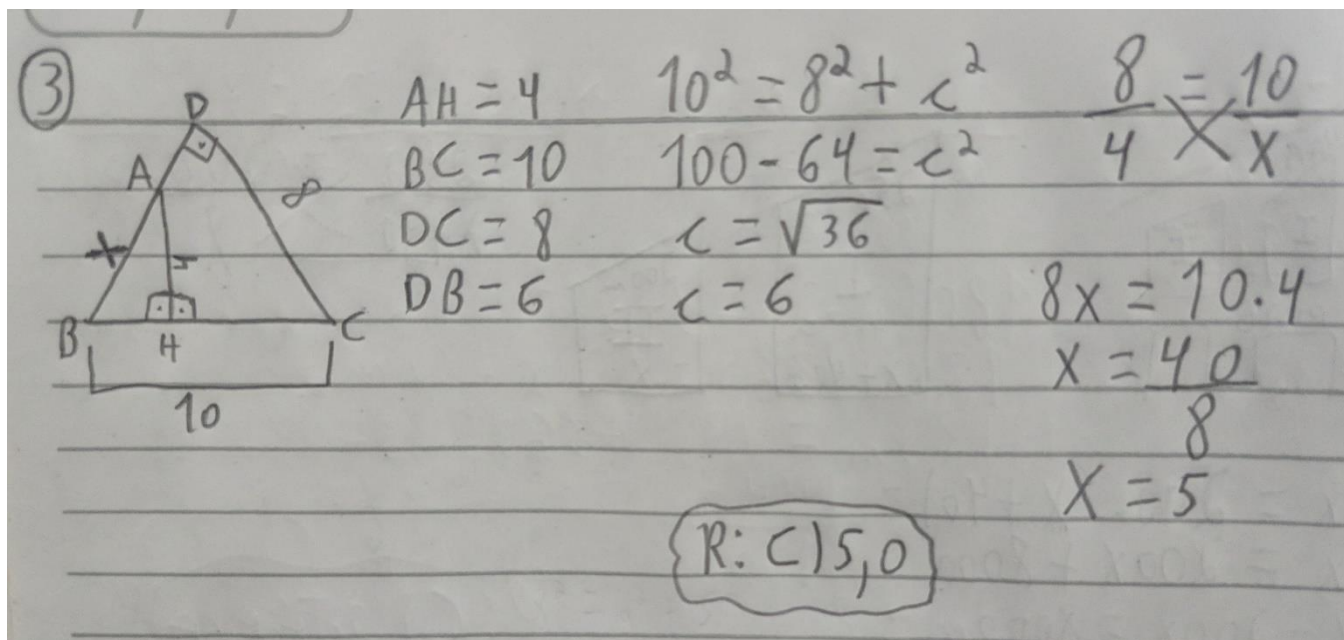 ③
D
A
8
x
4
B
H
C
10
AH = 4
BC = 10
DC = 8
DB = 6
10² = 8² + c²
100 - 64 = c²
c = √36
c = 6
8/4 = 10/x
8x = 10.4
x = 40/8
x = 5
R: C) 5,0